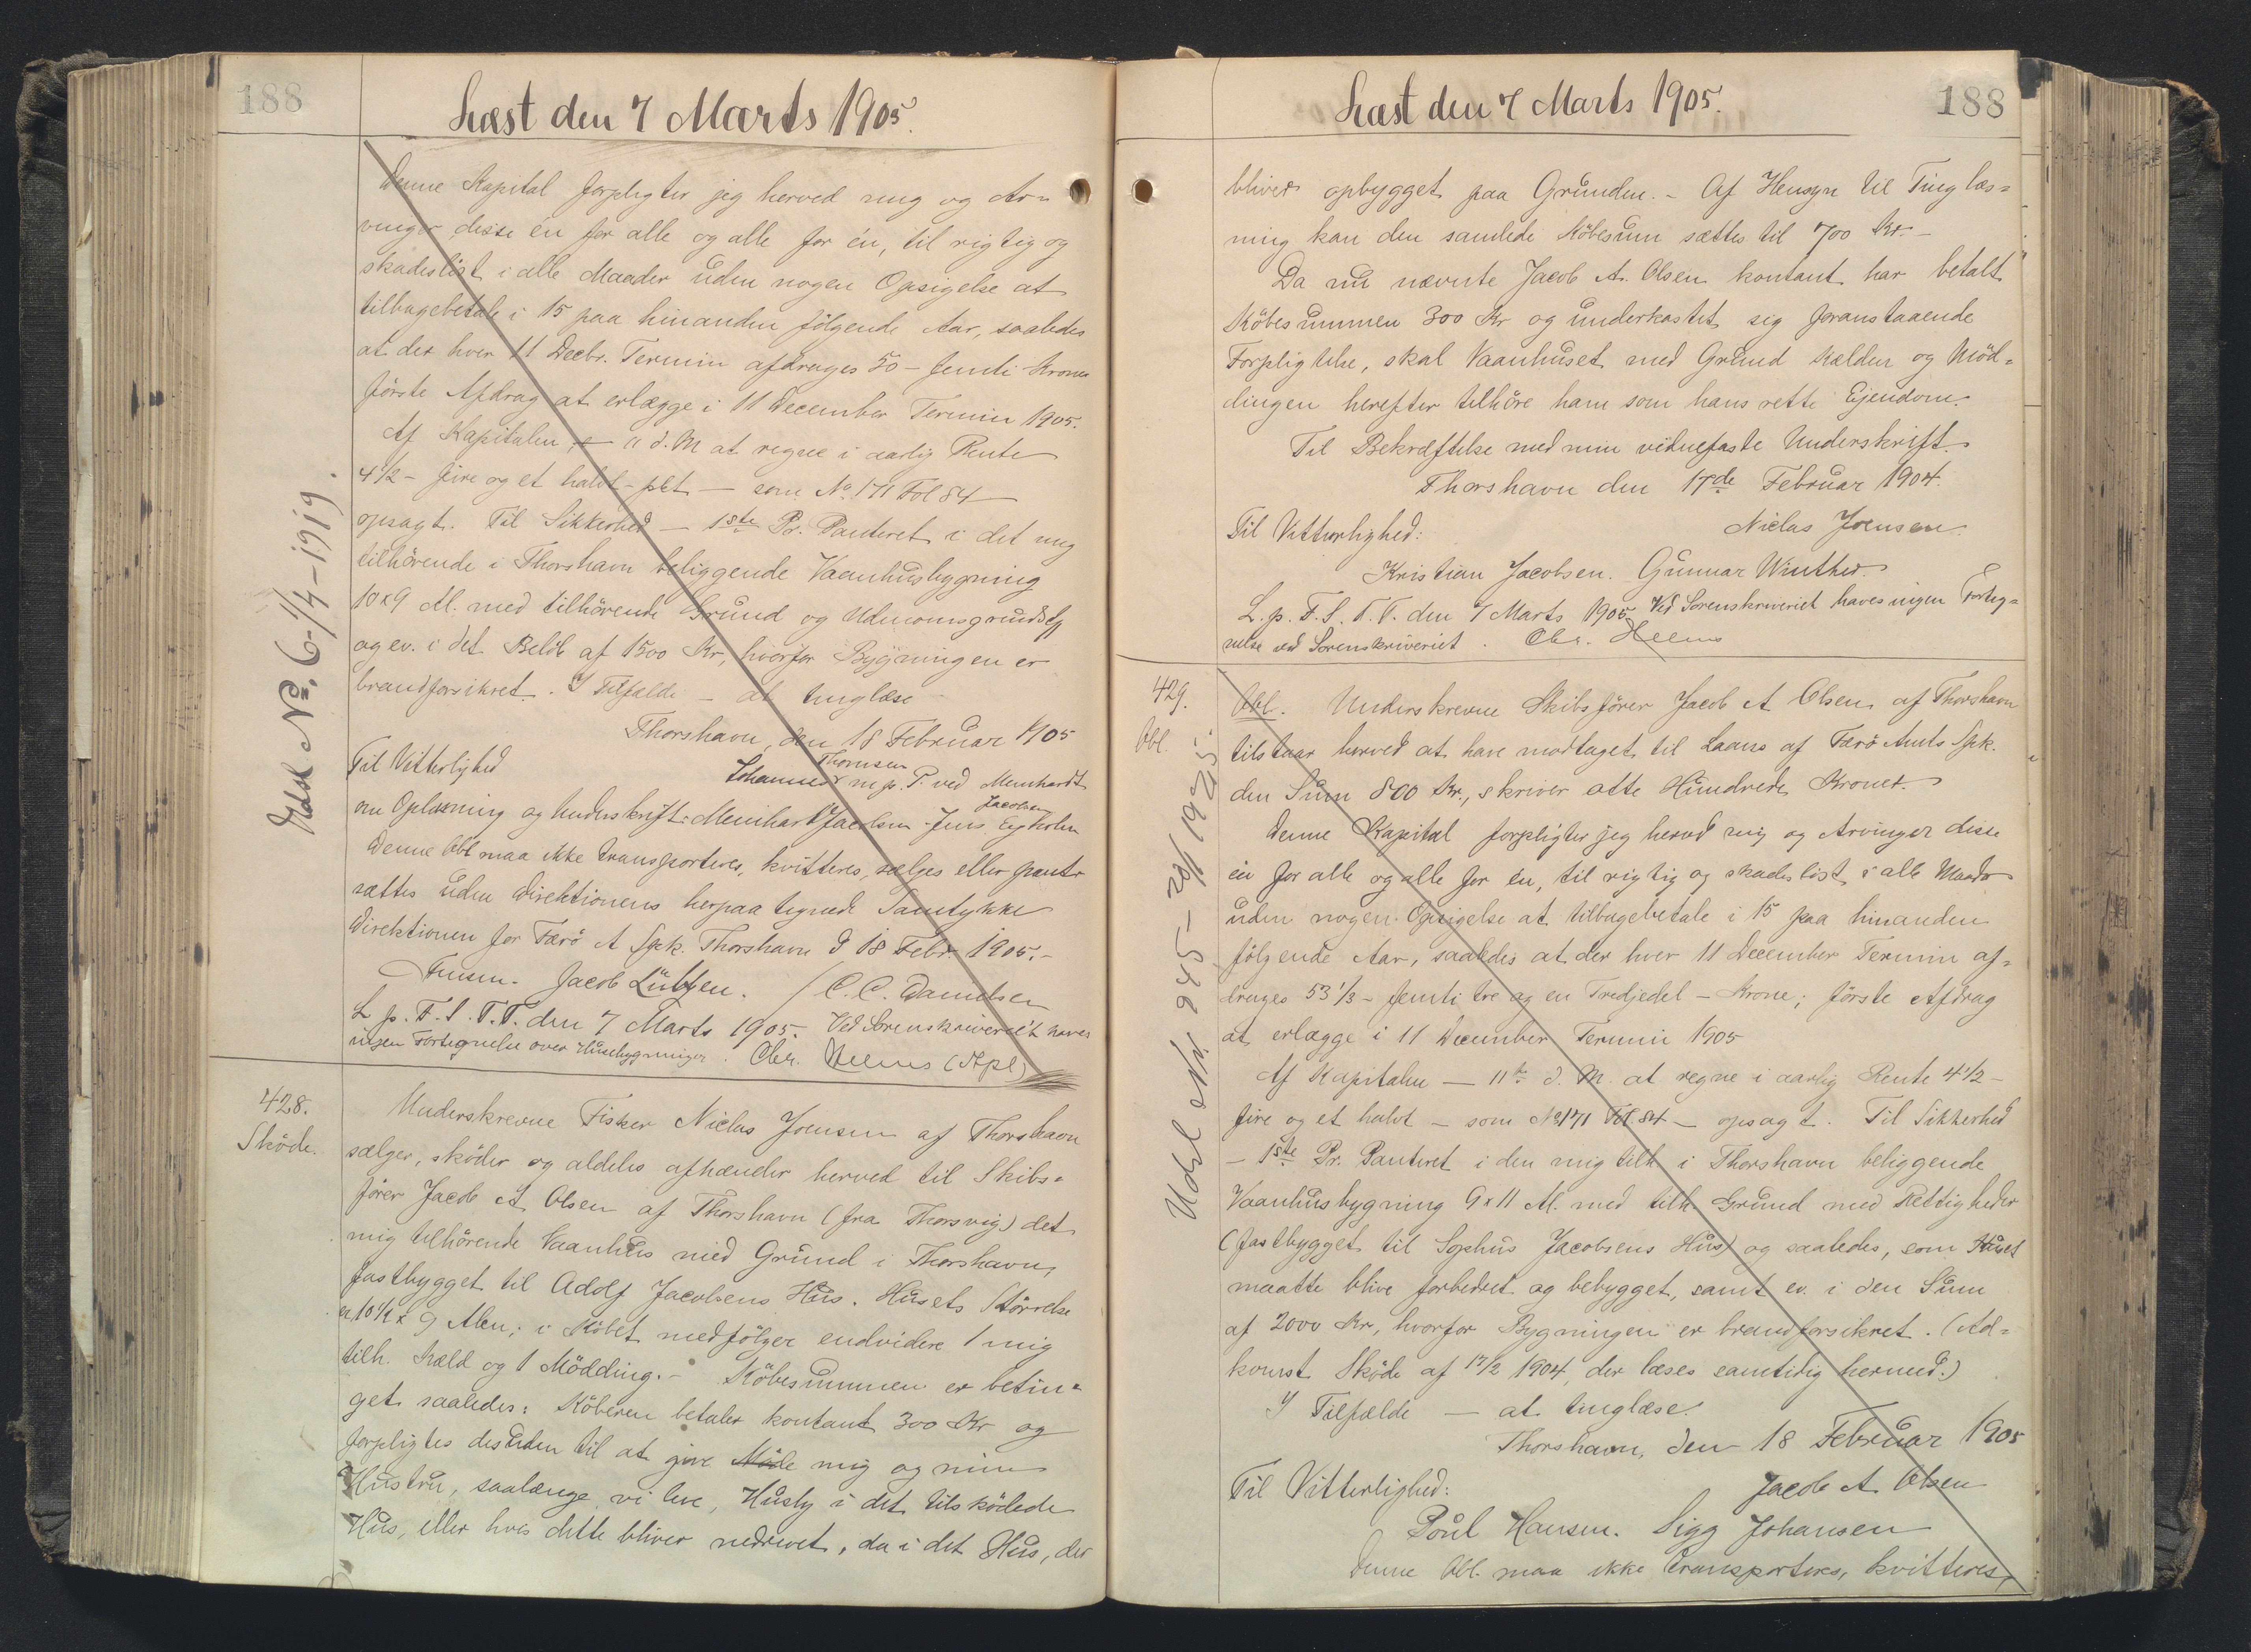 188
Læst den 7 Marts 1905.
Denne Kapital forpligter jeg herved mig og Ar-
vinger disse én for alle og alle for én, til rigtig og
skadesløst i alle Maader uden nogen Opsigelse at
tilbagebetale i 15 paa hinanden følgende Aar, saaledes
at der hver 11 Decbr. Termin afdrages 50 - femti Kroner
første Afdrag at erlægge i 11 December Termin 1905.
Af Kapitalen, e 11 d. M at regne i aarlig Rente
4½ - fire og et halvt - pct — som No 171 Fol 84 —
opsagt. Til Sikkerhed — 1ste Pr. Panteret i det mig
tilhörende i Thorshavn beliggende Vaanhusbygning
10x9 Al. med tilhörende Grund og Udenomsgrundstk
og ev. i det Belöb af 1500 Kr, hvorfor Bygningen er
brandforsikret. I Tilfælde — at tinglæse
Thorshavn, den 18 Februar 1905
Til Vitterlighed
Thomsen
Johannes m.p. P. ved Meinhardt
Jacobsen
om Oplæsning og Underskrift: Meinhardt Jacobsen Jens Ejholm
Denne Obl maa ikke transporteres, kvitteres, sælges eller pant-
sættes uden Direktionens herpaa tegnede Samtykke
Direktionen for Færö A Spk. Thorshavn d 18 Febr. 1905.-
Jensen. Jacob Lützen. / C. C. Danielsen
L. p. F. S. T. T. den 7 Marts 1905. Ved Sorenskriveriet haves
ingen Fortegnelse over Husebygninger. Chr. Heems (Kpl)
Udsl No 6-1/4-1919.
428.
Sköde.
Underskrevne Fisker Niclas Joensen af Thorshavn
sælger, sköder og aldeles afhænder herved til Skibs=
förer Jacob A Olsen af Thorshavn (fra Thorsvig) det
mig tilhörende Vaanhus med Grund i Thorshavn,
fastbygget til Adolf Jacobsens Hus. Husets Störrelse
er 10½ x 9 Alen; i Köbet medfölger endvidere 1 mig
tilh. Kæld og 1 Mödding.- Köbesummen er betin=
get saaledes: Köberen betaler kontant 300 Kr og
forpligtes desuden til at give mig og min
Hustru, saalænge vi leve, Husly i det tilsködede
Hus, eller hvis dette bliver nedrevet, da i det Hus, der
Læst den 7 Marts 1905.
188
bliver opbygget paa Grunden.- Af Hensyn til Tinglæs=
ning kan den samlede Köbesum sættes til 700 Kr.-
Da nu nævnte Jacob A. Olsen kontant har betalt
Köbesummen 300 Kr og underkastet sig foranstaaende
Forpligtelse, skal Vaanhuset med Grund Kælder og Möd=
dingen herefter tilhöre ham som hans rette Ejendom.
Til Bekræftelse med min vidnefaste Underskrift.
Thorshavn den 17de Februar 1904.
Niclas Joensen.
Til Vitterlighed:
Kristian Jacobsen. Gunnar Winther.
L. p. F. S. T. T. den 7 Marts 1905 Ved Sorenskriveriet haves ingen Forteg=
nelse ved Sorenskriveriet. Chr. Heems
429.
Obl.
Obl. Underskrevne Skibsförer Jacob A Olsen af Thorshavn
tilstaar herved at have modtaget til Laans af Færö Amts Spk.
den Sum 800 Kr., skriver otte Hundrede Kroner.
Denne Kapital forpligter jeg herved mig og Arvinger disse
én for alle og alle for én, til rigtig og skadeslöst i alle Maader
uden nogen Opsigelse at tilbagebetale i 15 paa hinanden
fölgende Aar, saaledes at der hver 11 December Termin af=
drages 53⅓ - femti tre og en Tredjedel - Krone; förste Afdrag
at erlægge i 11 December Termin 1905
Af Kapitalen — 11te d. M. at regne i aarlig Rente 4½ -
fire og et halvt — som No 171 Fol 84 — opsagt. Til Sikkerhed
— 1ste Pr. Panteret i den mig tilh i Thorshavn beliggende
Vaanhusbygning 9x11 Al. med tilh. Grund med Rettigheder
(fastbygget til Sophus Jacobsens Hus) og saaledes, som Huset
maatte blive forbedret og bebygget, samt ev. i den Sum
af 2000 Kr, hvorfor Bygningen er brandforsikret. (Ad=
komst Sköde af 17/2 1904, der læses samtidig hermed.)
I Tilfælde — at tinglæse.
Thorshavn, den 18 Februar 1905
Jacob A Olsen
Til Vitterlighed:
Poul Hansen. Sigg Johansen
Denne Obl. maa ikke transporteres, kvitteres,